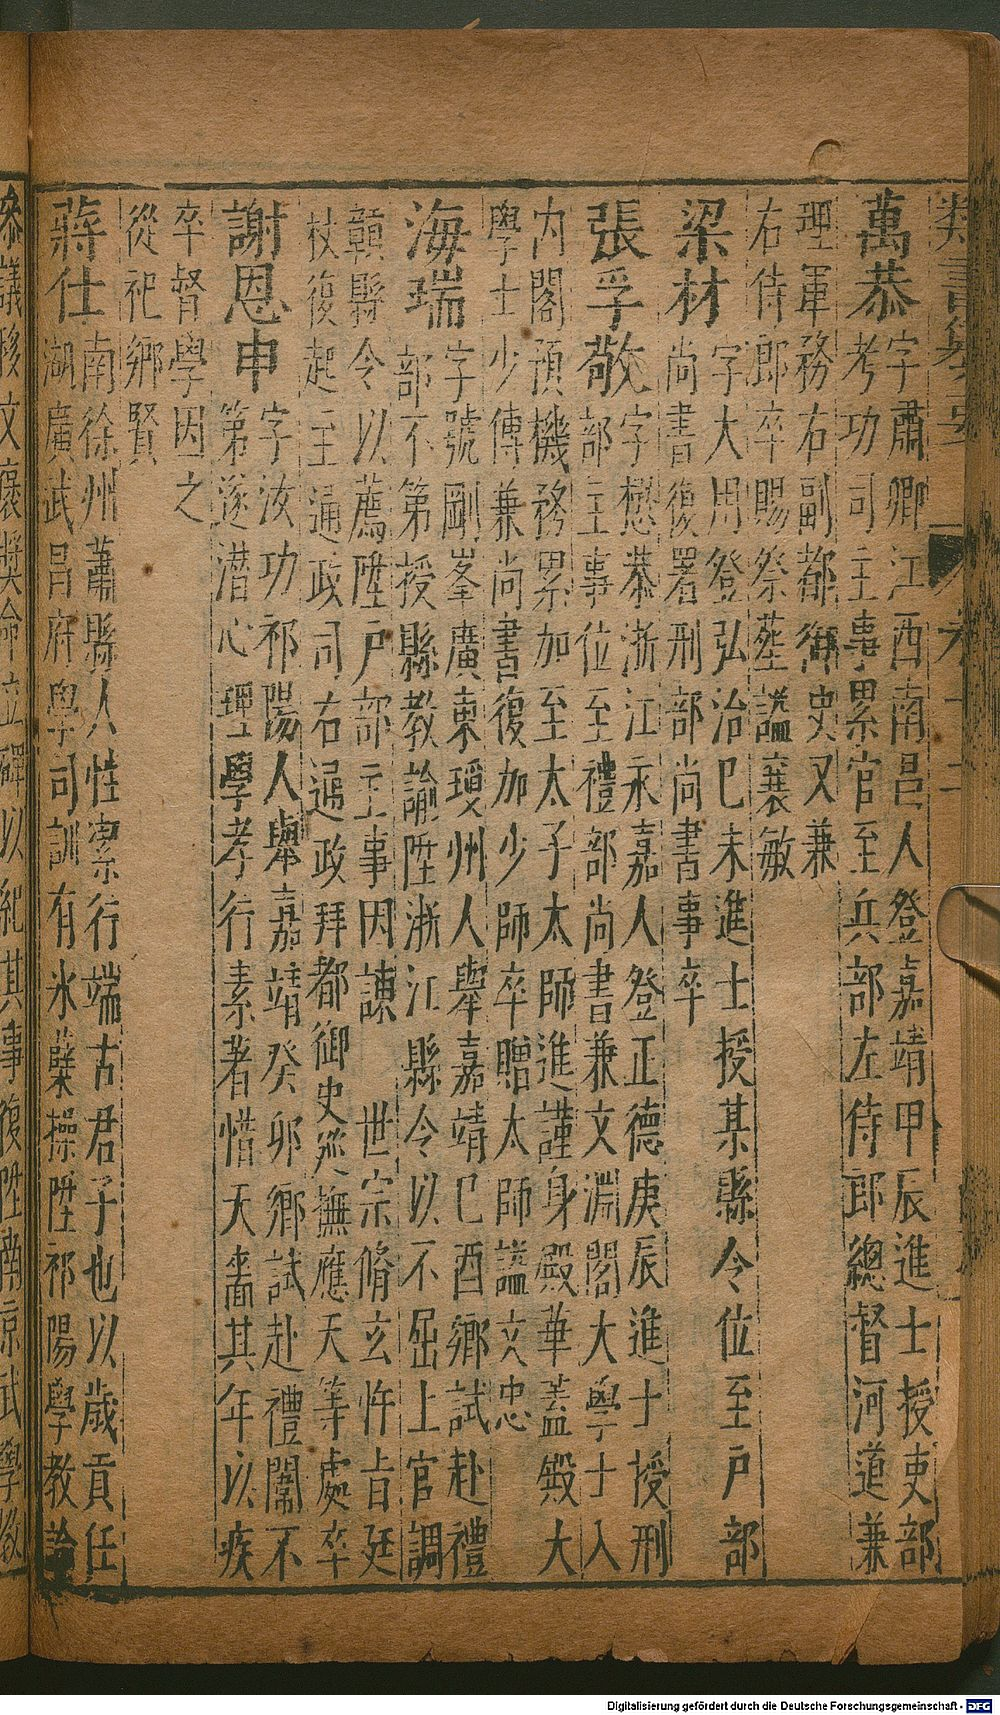 萬恭字肅卿江西南昌人登嘉靖甲辰進士授吏部
考功司主事累官至兵部左侍郎總督河道兼
理軍務右副都御史又兼
右侍郎卒賜祭塟謚襄敏
梁材字大用登弘治己未進士授某縣令位至戶部
尚書復署刑部尚書事卒
張孚敬字懋恭浙江永嘉人登正德庚辰進士授刑
部主事位至禮部尚書兼文淵閣大學士入
內閣預機務累加至太子太師進謹身殿華蓋殿大
學士少傅兼尚書復加少師卒贈太師謚文忠
海瑞字號剛峯廣東瓊州人舉嘉靖己酉鄉試赴禮
部不第授縣教諭陞浙江縣令以不屈上官調
贛縣令以薦陞戶部主事因諫 世宗脩玄忤旨廷
杖復起主通政司右通政拜都御史廵撫應天等處卒
謝恩申字汝功祁陽人舉嘉靖癸卯鄉試赴禮闈不
第遂潛心理學孝行素著惜天嗇其年以疾
卒督學因之
從祀鄉賢
蔣仕南徐州蕭縣人性潔行端古君子也以歲貢任
湖廣武昌府學司訓有氷蘗操陞祁陽學教諭
叅議移文褒獎命立碑以紀其事復陞南京武學教
Digitalisierung gefördert durch die Deutsche Forschungsgemeinschaft - DFG